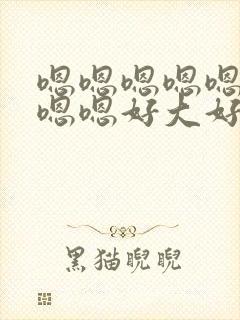 嗯嗯嗯嗯嗯
嗯嗯好大好
黑猫睨睨